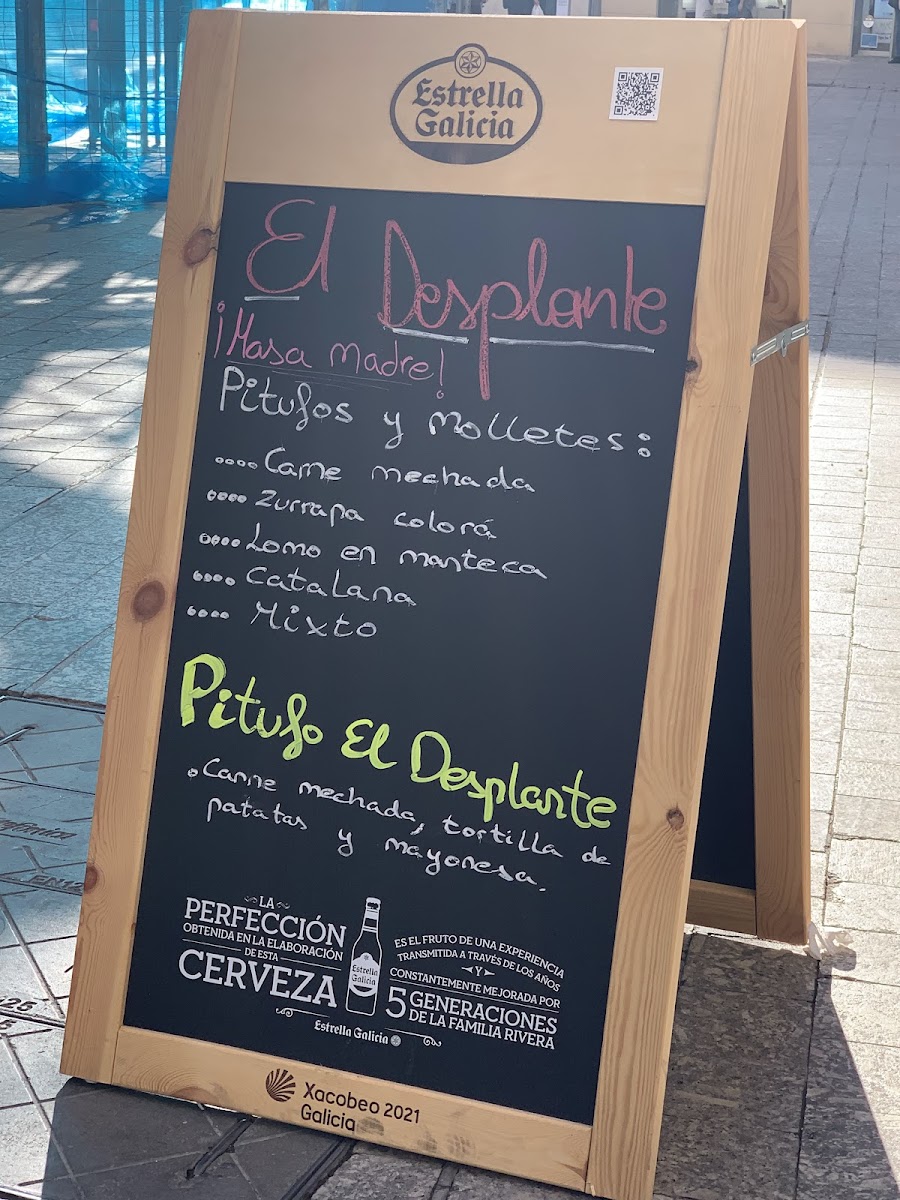 Estrella
Galicia
El Desplante
¡Masa Madre!
Pitufos y Molletes:
.... Carne mechada
.... Zurrapa colorá
.... Lomo en manteca
.... Catalana
.... Mixto
Pitufo El Desplante
. Carne mechada, tortilla de
patatas y mayonesa.
LA
PERFECCIÓN
OBTENIDA EN LA ELABORACIÓN
DE ESTA
CERVEZA
Estrella
Galicia
ES EL FRUTO DE UNA EXPERIENCIA
TRANSMITIDA A TRAVÉS DE LOS AÑOS
Y
CONSTANTEMENTE MEJORADA POR
5 GENERACIONES
DE LA FAMILIA RIVERA
Estrella Galicia
Xacobeo 2021
Galicia